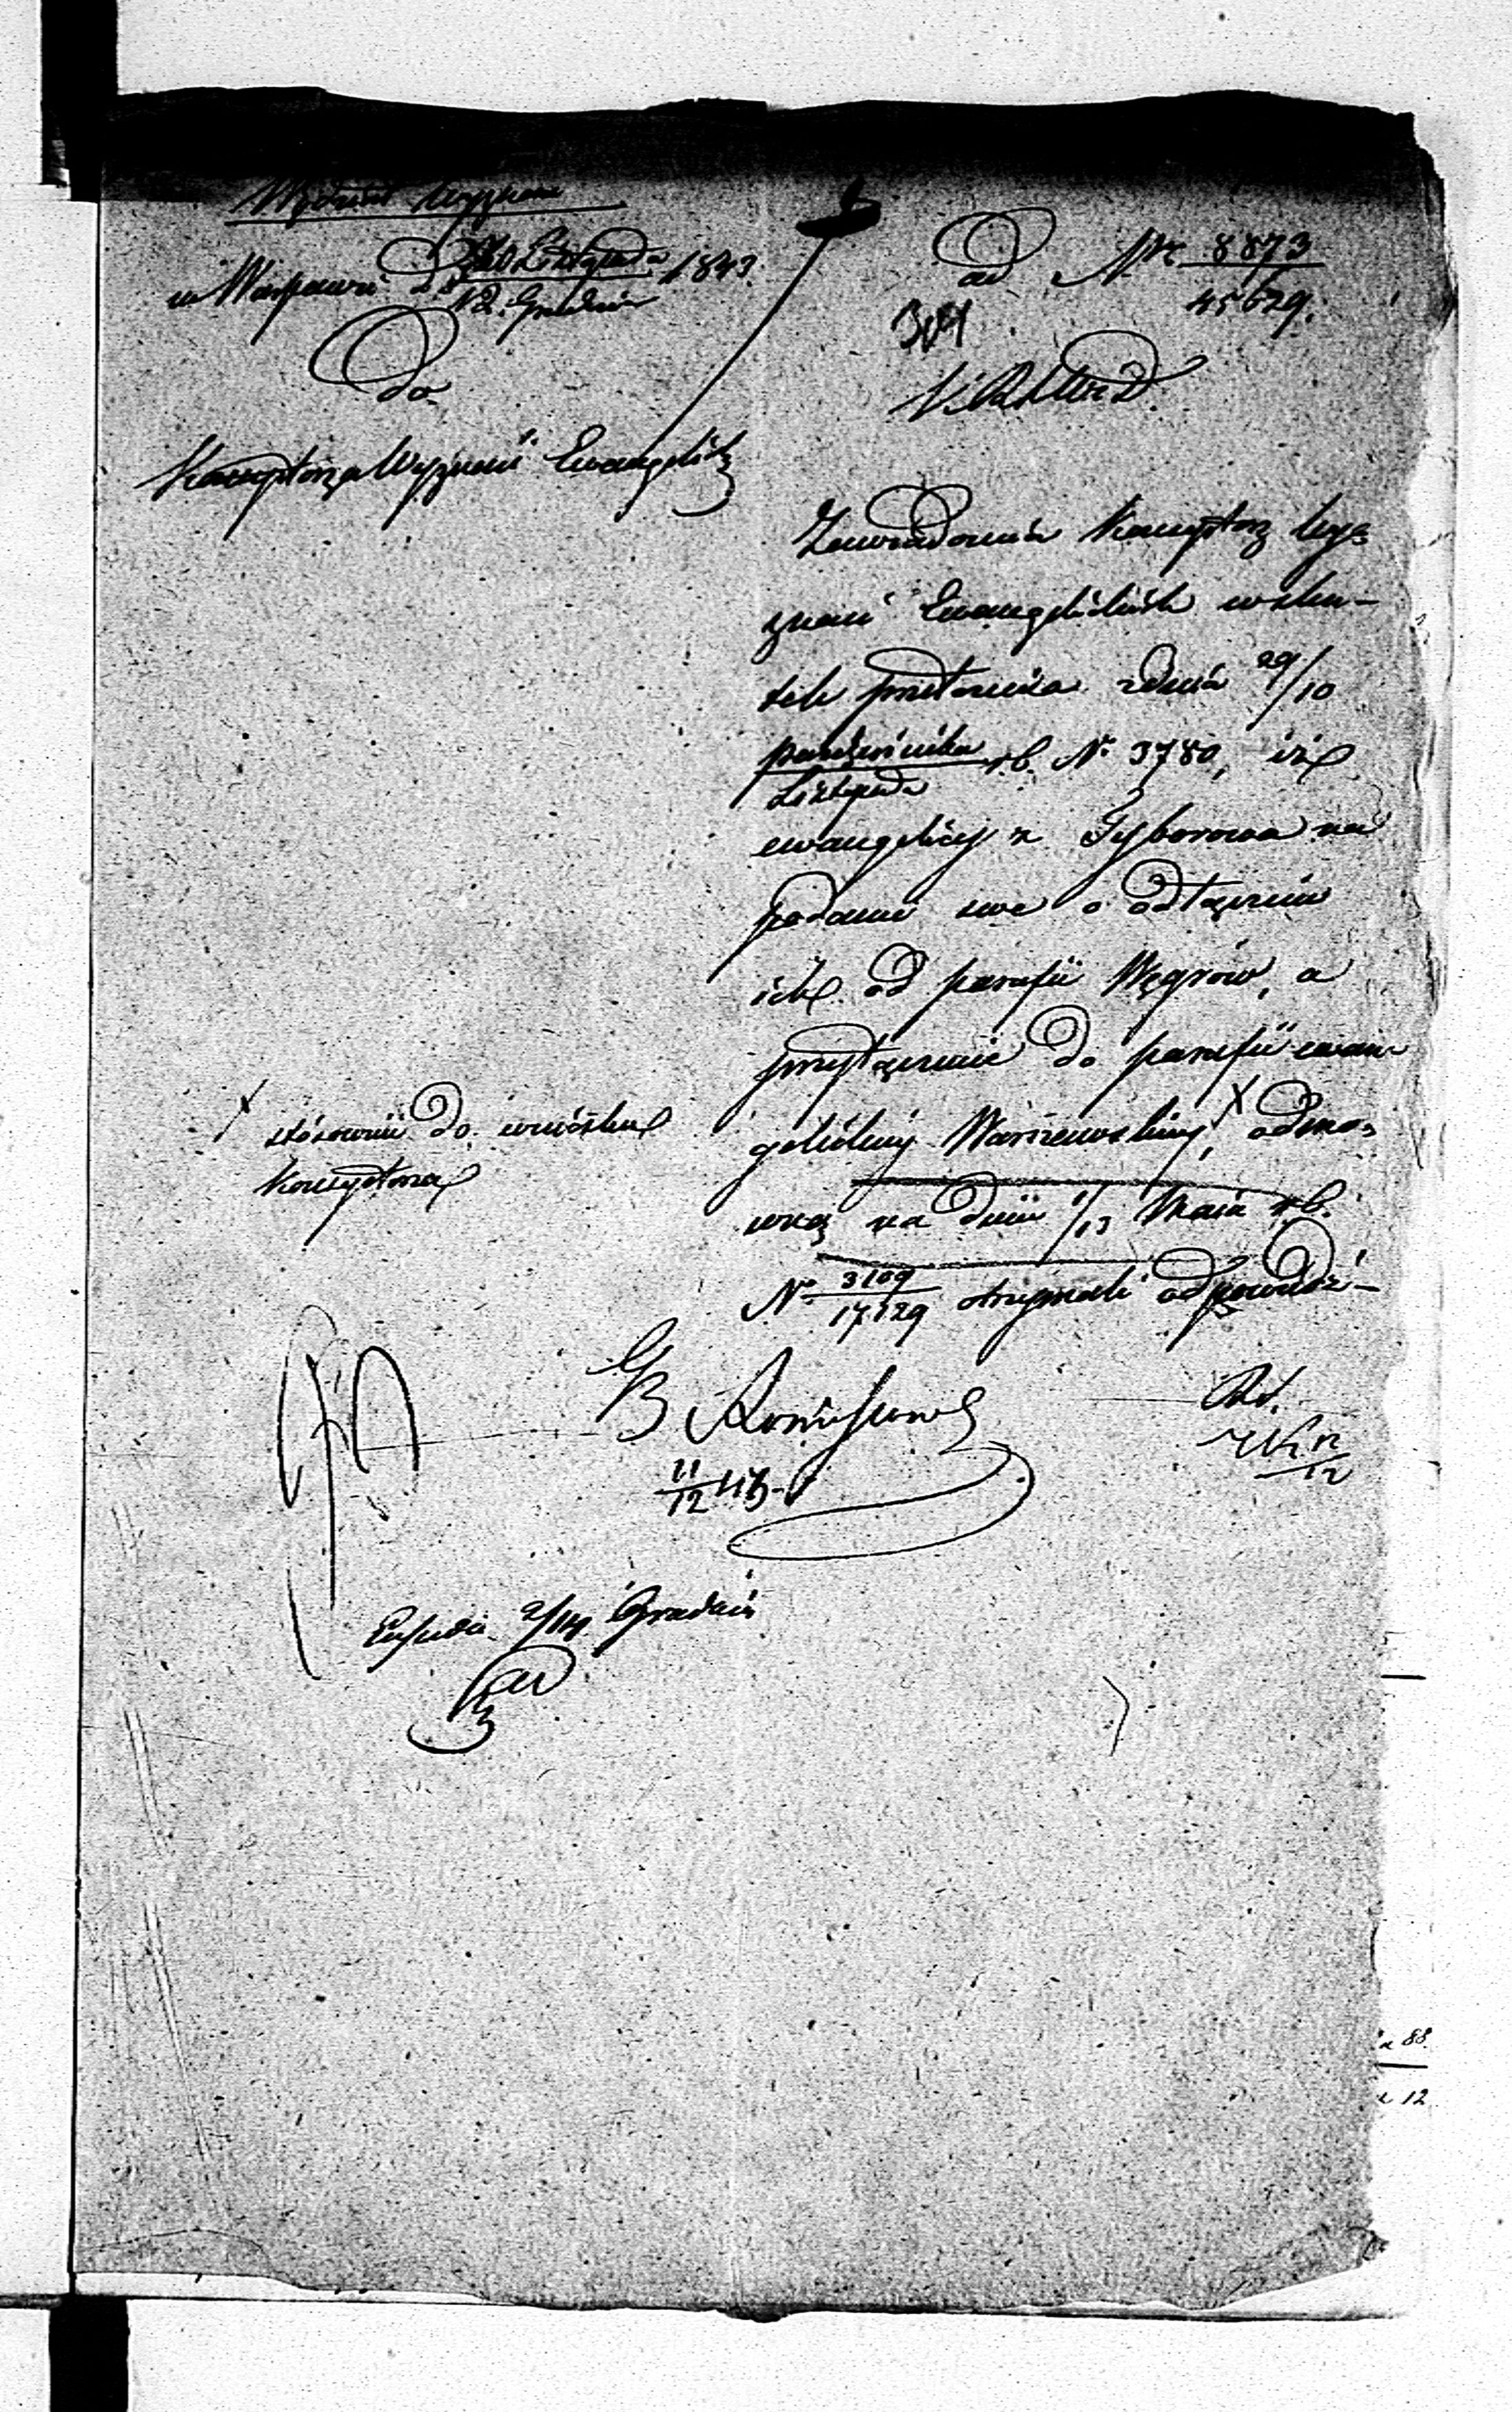 Wydział Wyznań
w Warszawie d. 30 Listopada / 12. Grudnia 1843.
Do
Konsystorza Wyznań Ewangelick
ad Nr 8873 / 45629.
Zawiadomia Konsystorz Wy=
znań Ewangelickich wsku-
tek przedstawienia z dnia 29/10
Października / Listopada r.b. N. 3780, iż
ewangelicy z Tyborowa na
podanie swe o odłączenie
ich od parafii Węgrów, a
przyłączenie do parafii ewan
gelickiej Warszewskiej, X odmo=
wną na dniu 1/13 Maja r.b.
N. 3109 / 17.129 otrzymali odpowiedź-
X stósownie do wniosku
Konsystorza
11/12 43
12/12
Expedia 2/14 Grudnia